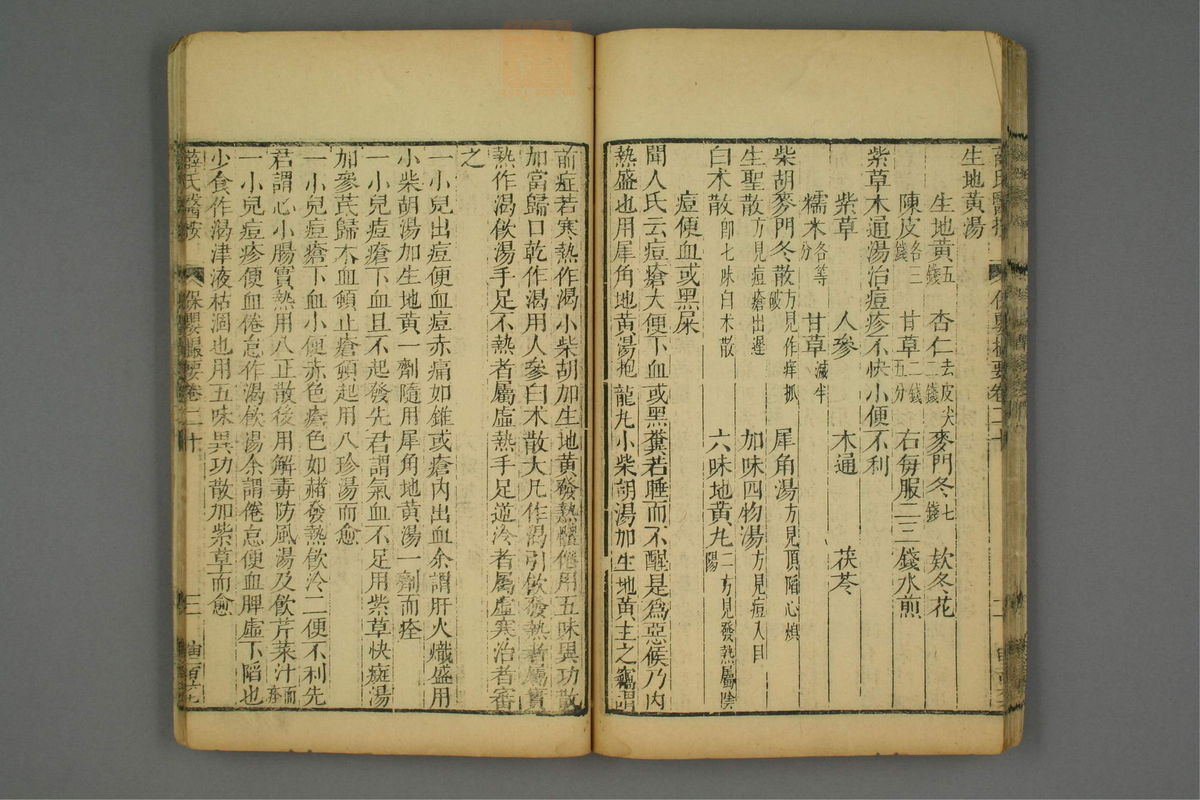 生地黃湯
生地黃五錢 杏仁二錢去皮尖 麥門冬七錢 欵冬花
陳皮各三錢 甘草二錢五分 右每服二三錢水煎
紫草木通湯治痘疹不快小便不利
紫草 人參 木通 茯苓
糯米各等分 甘草減半
柴胡麥門冬散方見作痒抓破 犀角湯方見頂陷心煩
生聖散方見痘瘡出遲 加味四物湯方見痘入目
白朮散即七味白朮散 六味地黃丸二方見發熱屬陰陽
痘便血或黑屎
聞人氏云痘瘡大便下血或黑糞若睡而不醒是爲惡候乃內
熱盛也用犀角地黃湯抱龍丸小柴胡湯加生地黃主之竊謂
前症若寒熱作渴小柴胡加生地黃發熱體倦用五味異功散
加當歸口乾作渴用人參白朮散大凡作渴引飲發熱者屬實
熱作渴飲湯手足不熱者屬虛熱手足逆冷者屬虛寒治者審
之
一小兒出痘便血痘赤痛如錐或瘡內出血余謂肝火熾盛用
小柴胡湯加生地黃一劑隨用犀角地黃湯一劑而痊
一小兒痘瘡下血且不起發先君謂氣血不足用紫草快癍湯
加參芪歸朮血頓止瘡頓起用八珍湯而愈
一小兒痘瘡下血小便赤色瘡色如赭發熱飲冷二便不利先
君謂心小腸實熱用八正散後用解毒防風湯及飲芹菜汁而痊
一小兒痘疹便血倦怠作渴飲湯余謂倦怠便血脾虛下陷也
少食作渴津液枯涸也用五味異功散加紫草而愈
薛氏醫按 保嬰撮要卷二十 三